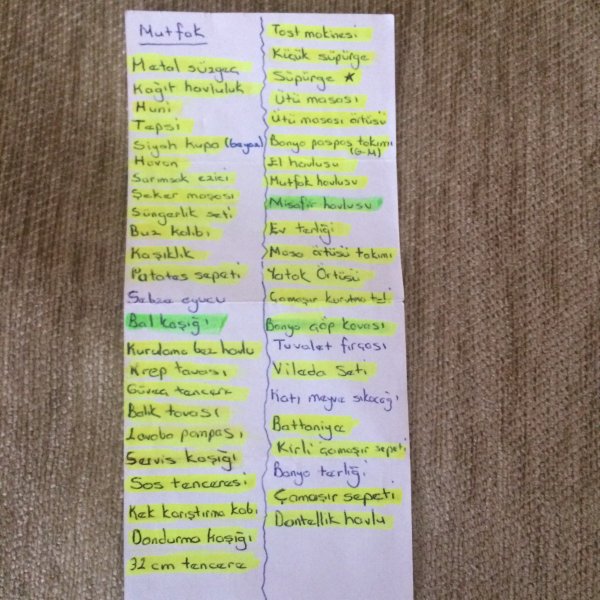 Mutfak
Metal süzgeç
Kağıt havluluk
Huni
Tepsi
Siyah kupa (beyaz)
Havan
Sarımsak ezici
Şeker maşası
Süngerlik seti
Buz kalıbı
Kaşıklık
Patates sepeti
Sebze oyucu
Bal kaşığı
Kurulama bez havlu
Krep tavası
Güveç tencere
Balık tavası
Lavabo pompası
Servis kaşığı
Sos tenceresi
Kek karıştırma kabı
Dondurma kaşığı
32 cm tencere
Tost makinesi
Küçük süpürge
Süpürge ★
Ütü masası
Ütü masası örtüsü
Banyo paspas takımı
(G-M)
El havlusu
Mutfak havlusu
Misafir havlusu
Ev terliği
Masa örtüsü takımı
Yatak Örtüsü
Çamaşır kurutma
Banyo çöp kovası
Tuvalet fırçası
Vileda Seti
Katı meyve sıkacağı
Battaniye
Kirli çamaşır sepeti
Banyo terliği
Çamaşır sepeti
Dantellik havlu